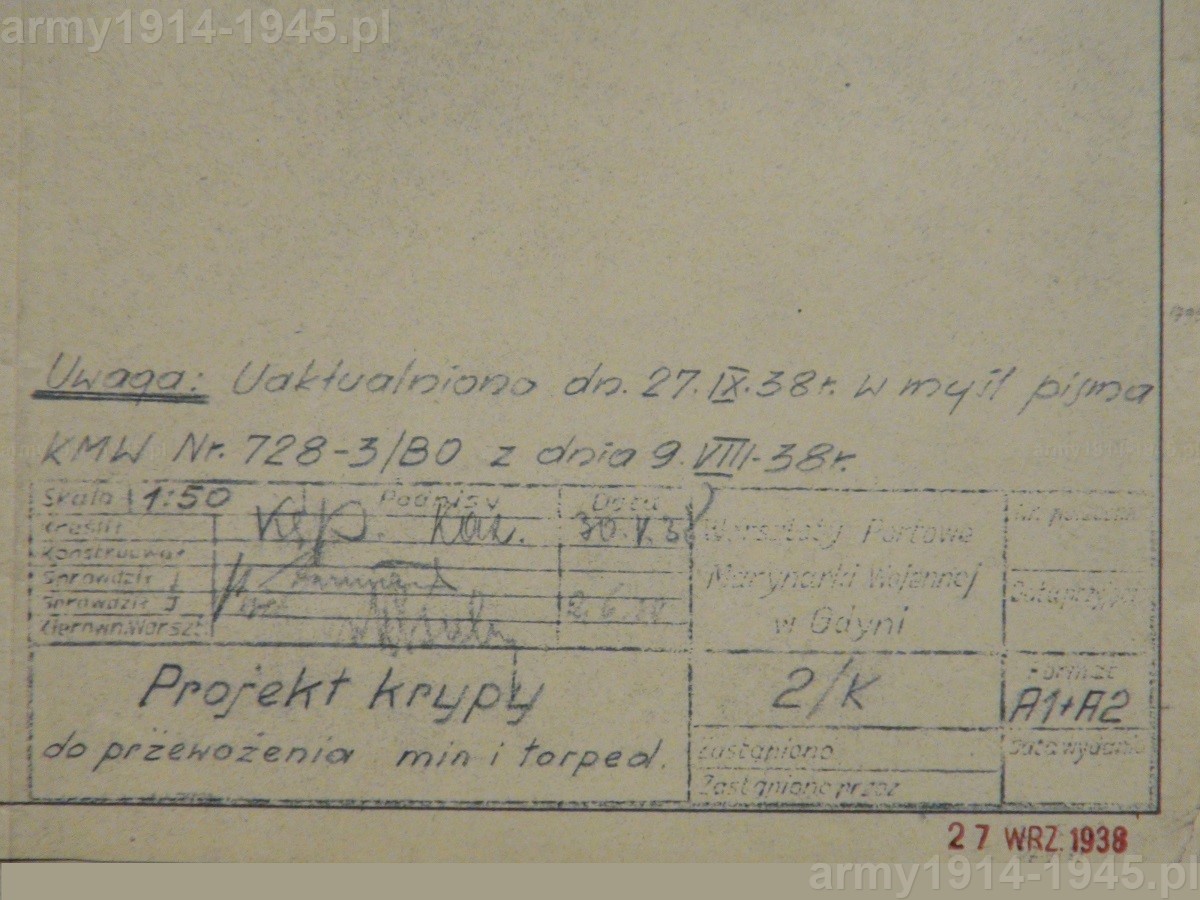 army1914-1945.pl
Uwaga: Uaktualniono dn. 27.IX.38r. w myśl pisma
KMW Nr. 728-3/BO z dnia 9.VIII.38r.
Skala 1:50 Podpisy Data
Kreślił 30.V.38
Konstruował
Sprawdził
Sprawdził J 2.6.
Kierown.Warszt.
Warsztaty Portowe
Marynarki Wojennej
w Gdyni
Projekt krypy
do przewożenia min i torped.
2/K
Format
A1+A2
Zastąpiono
Zastąpiono przez
Data wydania
27 WRZ. 1938
army1914-1945.pl